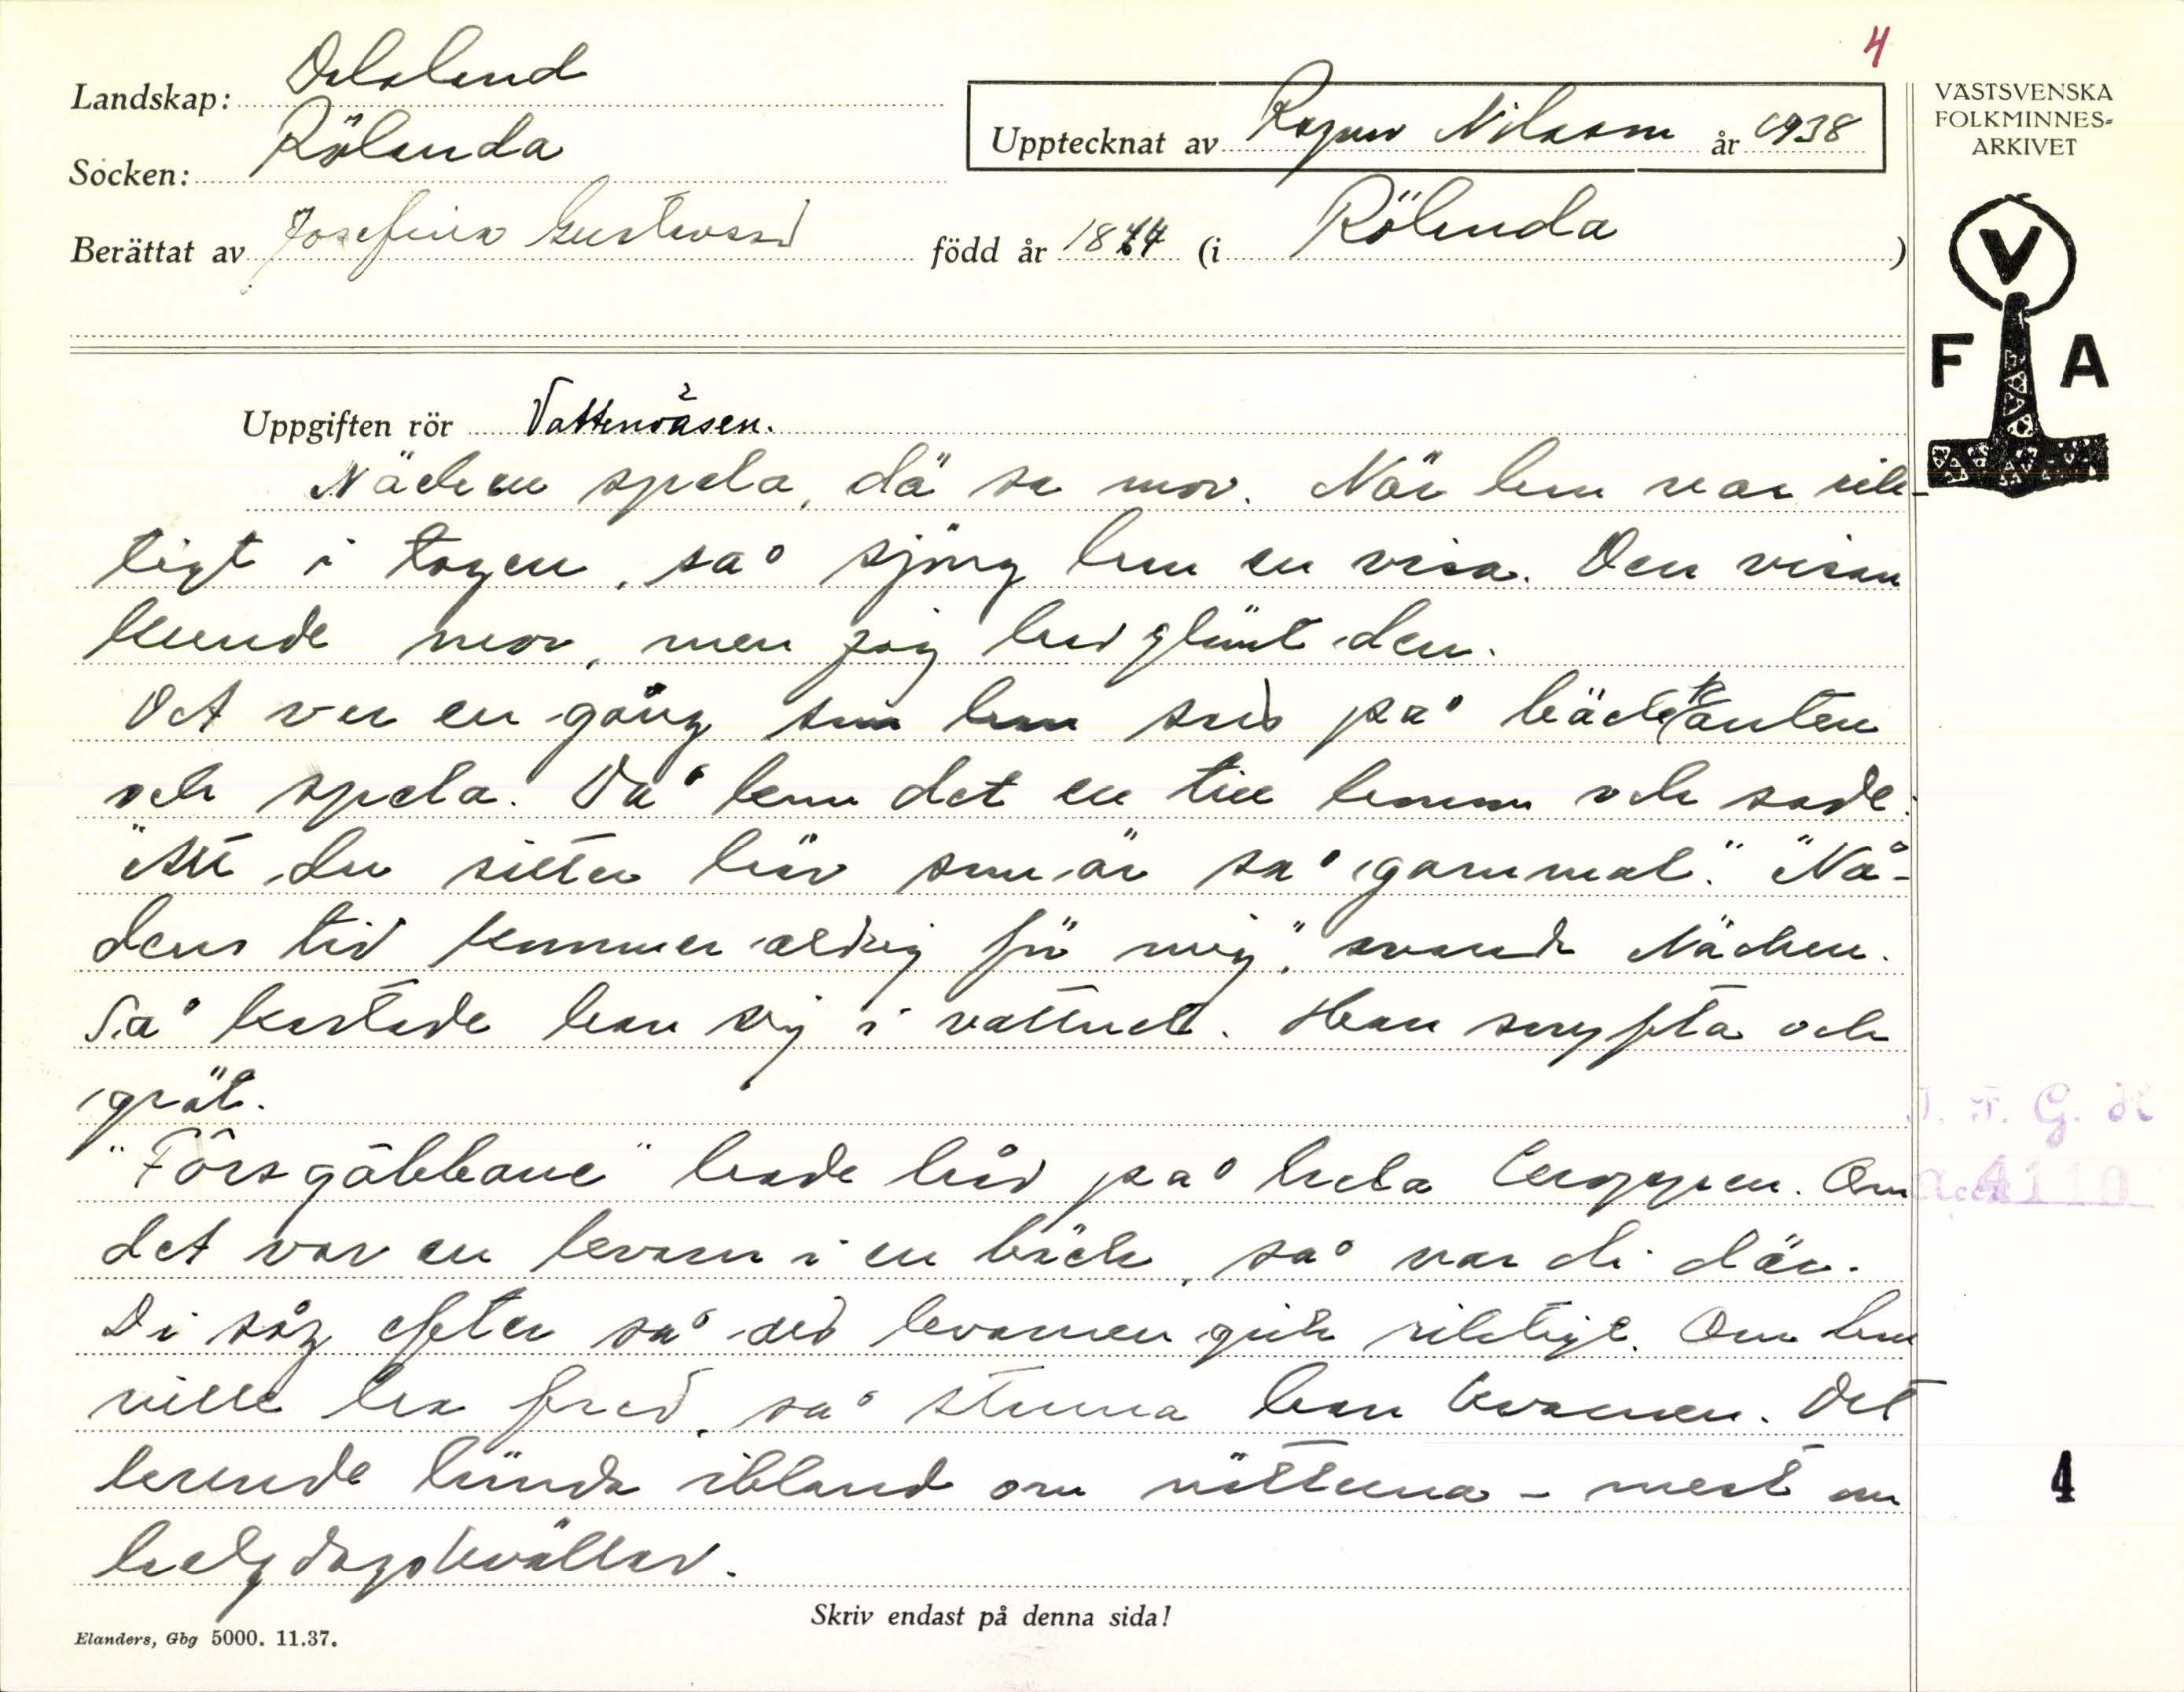 4
Landskap: Dalsland
Socken: Rölanda
Upptecknat av Ragnar Nilsson år 1938
Berättat av Josefina Gustavsson född år 1874 (i Rölanda)
VÄSTSVENSKA
FOLKMINNES-
ARKIVET
V
F A
Uppgiften rör Vattenväsen.
Näcken spela, dä sa mor. När han var rik-
tigt i tagen, så sjöng han en visa. Den visan
kunde mor, men jag har glömt den.
Det var en gång som han satt på bäckkanten
och spela. Då kom det en till honom och sade:
"Att du sitter här som är så gammal." "Nå-
dens tid kommer aldrig för mig", svarade Näcken.
Så kastade han sig i vattnet. Han snyfta och
grät.
"Forsgåbbane" hade hår på hela kroppen. Om
det var en kvarn i en bäck, så var di där.
Di såg efter så att kvarnen gick riktigt. Om han
ville ha fred, så stanna han kvarnen. Det
kunde hända ibland om nätterna - mest om
helgdagskvällar.
J. F. G. H
Acc 4110
4
Skriv endast på denna sida!
Elanders, Gbg 5000. 11.37.